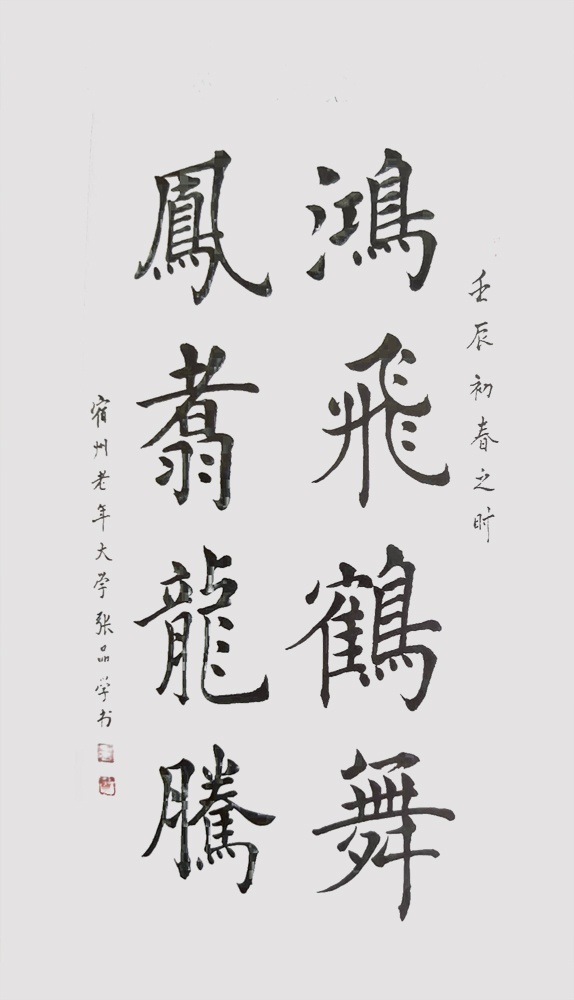 壬辰初春之时
鴻飛鶴舞
鳳翥龍騰
宿州老年大学张品学书